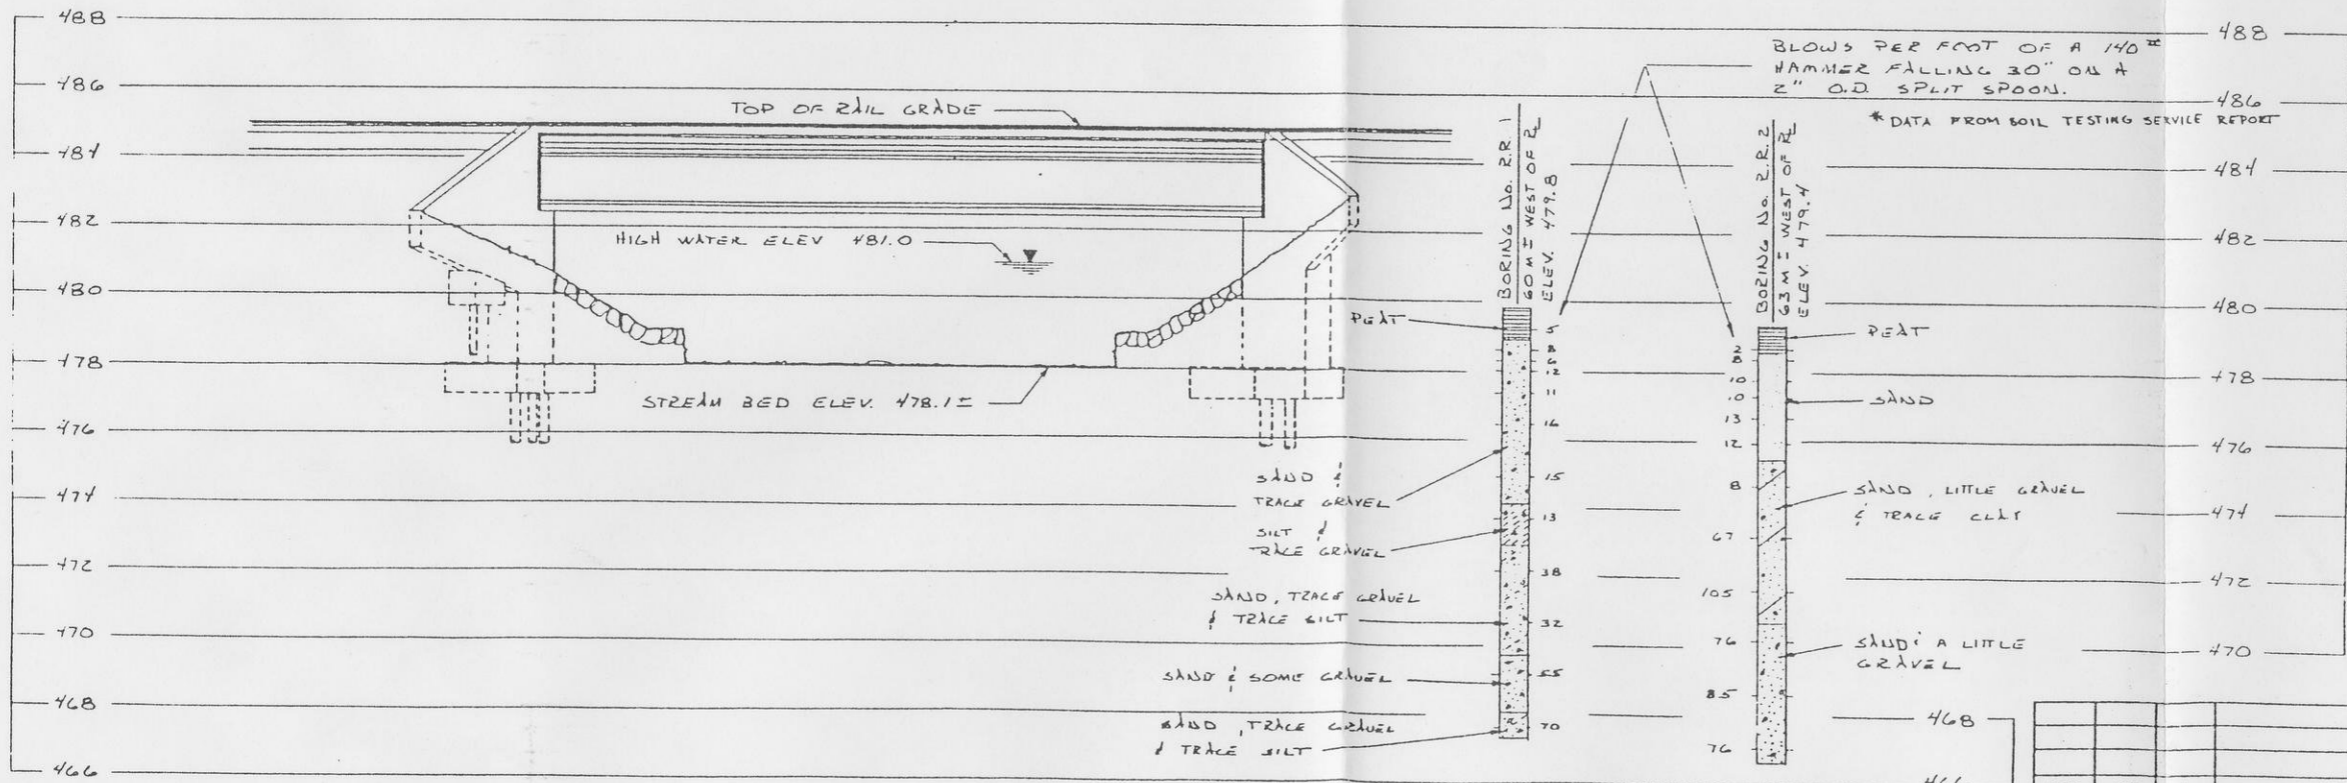 488
486
484
482
480
478
476
474
472
470
468
466
TOP OF RAIL GRADE
HIGH WATER ELEV 481.0
STREAM BED ELEV. 478.1±
BLOWS PER FOOT OF A 140#
HAMMER FALLING 30" ON A
2" O.D. SPLIT SPOON.
* DATA FROM SOIL TESTING SERVICE REPORT
BORING No. R.R. 1
60 M ± WEST OF ℞
ELEV. 479.8
PEAT
5
8
6
12
11
16
15
13
38
32
55
70
SAND &
TRACE GRAVEL
SILT &
TRACE GRAVEL
SAND, TRACE GRAVEL
& TRACE SILT
SAND & SOME GRAVEL
SAND, TRACE GRAVEL
& TRACE SILT
BORING No. R.R. 2
63 M ± WEST OF ℞
ELEV. 479.4
PEAT
2
8
10
10
13
12
8
67
105
76
85
76
SAND
SAND, LITTLE GRAVEL
& TRACE CLAY
SAND & A LITTLE
GRAVEL
488
486
484
482
480
478
476
474
472
470
468
466